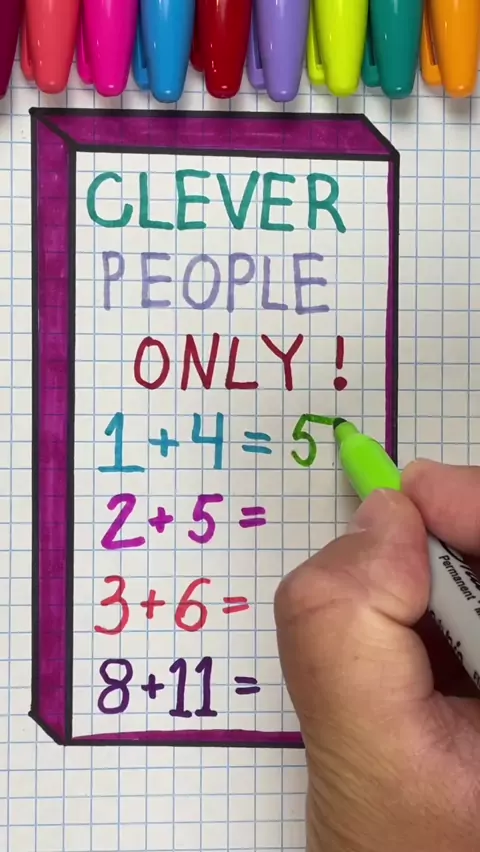 CLEVER
PEOPLE
ONLY !
1 + 4 = 5
2 + 5 =
3 + 6 =
8 + 11 =
Permanent